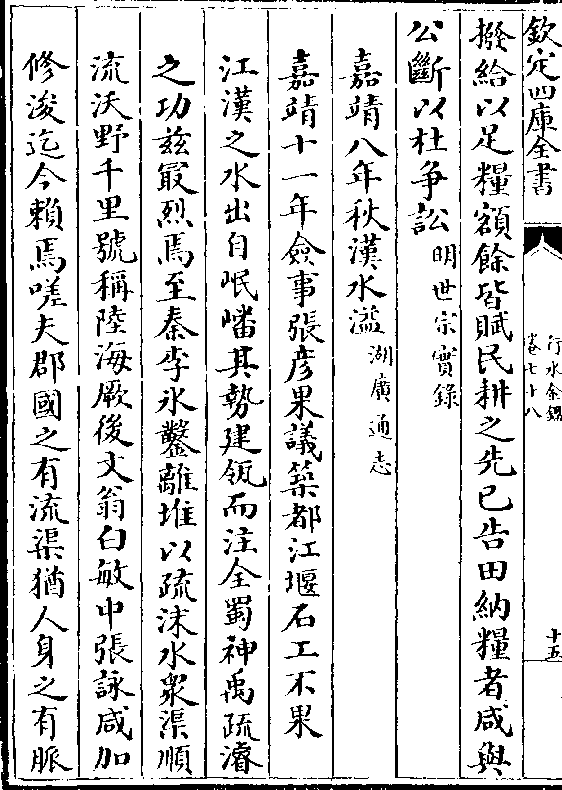 欽定四庫全書
行水金鑑
卷七十八
十五
撥給以足糧額餘皆賦民耕之先已告田納糧者咸與
公斷以杜爭訟明世宗實錄
嘉靖八年秋漢水溢湖廣通志
嘉靖十一年僉事張彥杲議築都江堰石工不果
江漢之水出自岷嶓其勢建瓴而注全蜀神禹疏濬
之功茲最烈焉至秦李氷鑿離堆以疏沫水衆渠順
流沃野千里號稱陸海厥後文翁白敏中張詠咸加
修浚迄今賴焉嗟夫郡國之有流渠猶人身之有脈